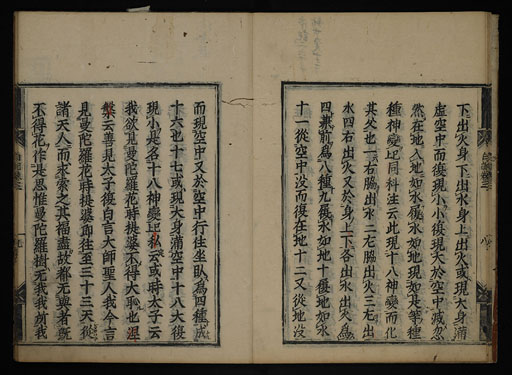 下出火身下出水身上出火或現大身滿
虛空中而復現小小復現大於空中滅忽
然在地入地如水履水如地現如是等種
種神變記同科注云此現十八神變而化
其父也一右脇出水二左脇出火三左出
水四右出火又於身上下各出水出火為
四兼前為八種九履水如地十履地如水
十一從空中沒而復在地十二又從地沒
而現空中又於空中行住坐臥為四種成
十六也十七或現大身滿空中十八大復
現小是名十八神變記私云或時太子云
我欲見曼陀羅花時提婆不得大恥也涅
槃云善見太子復白言大師聖人我今言
見曼陀羅花時提婆即往至三十三天從
諸天人而求索之其福盡故都无與者既
不得花作是思惟曼陀羅樹无我我所我